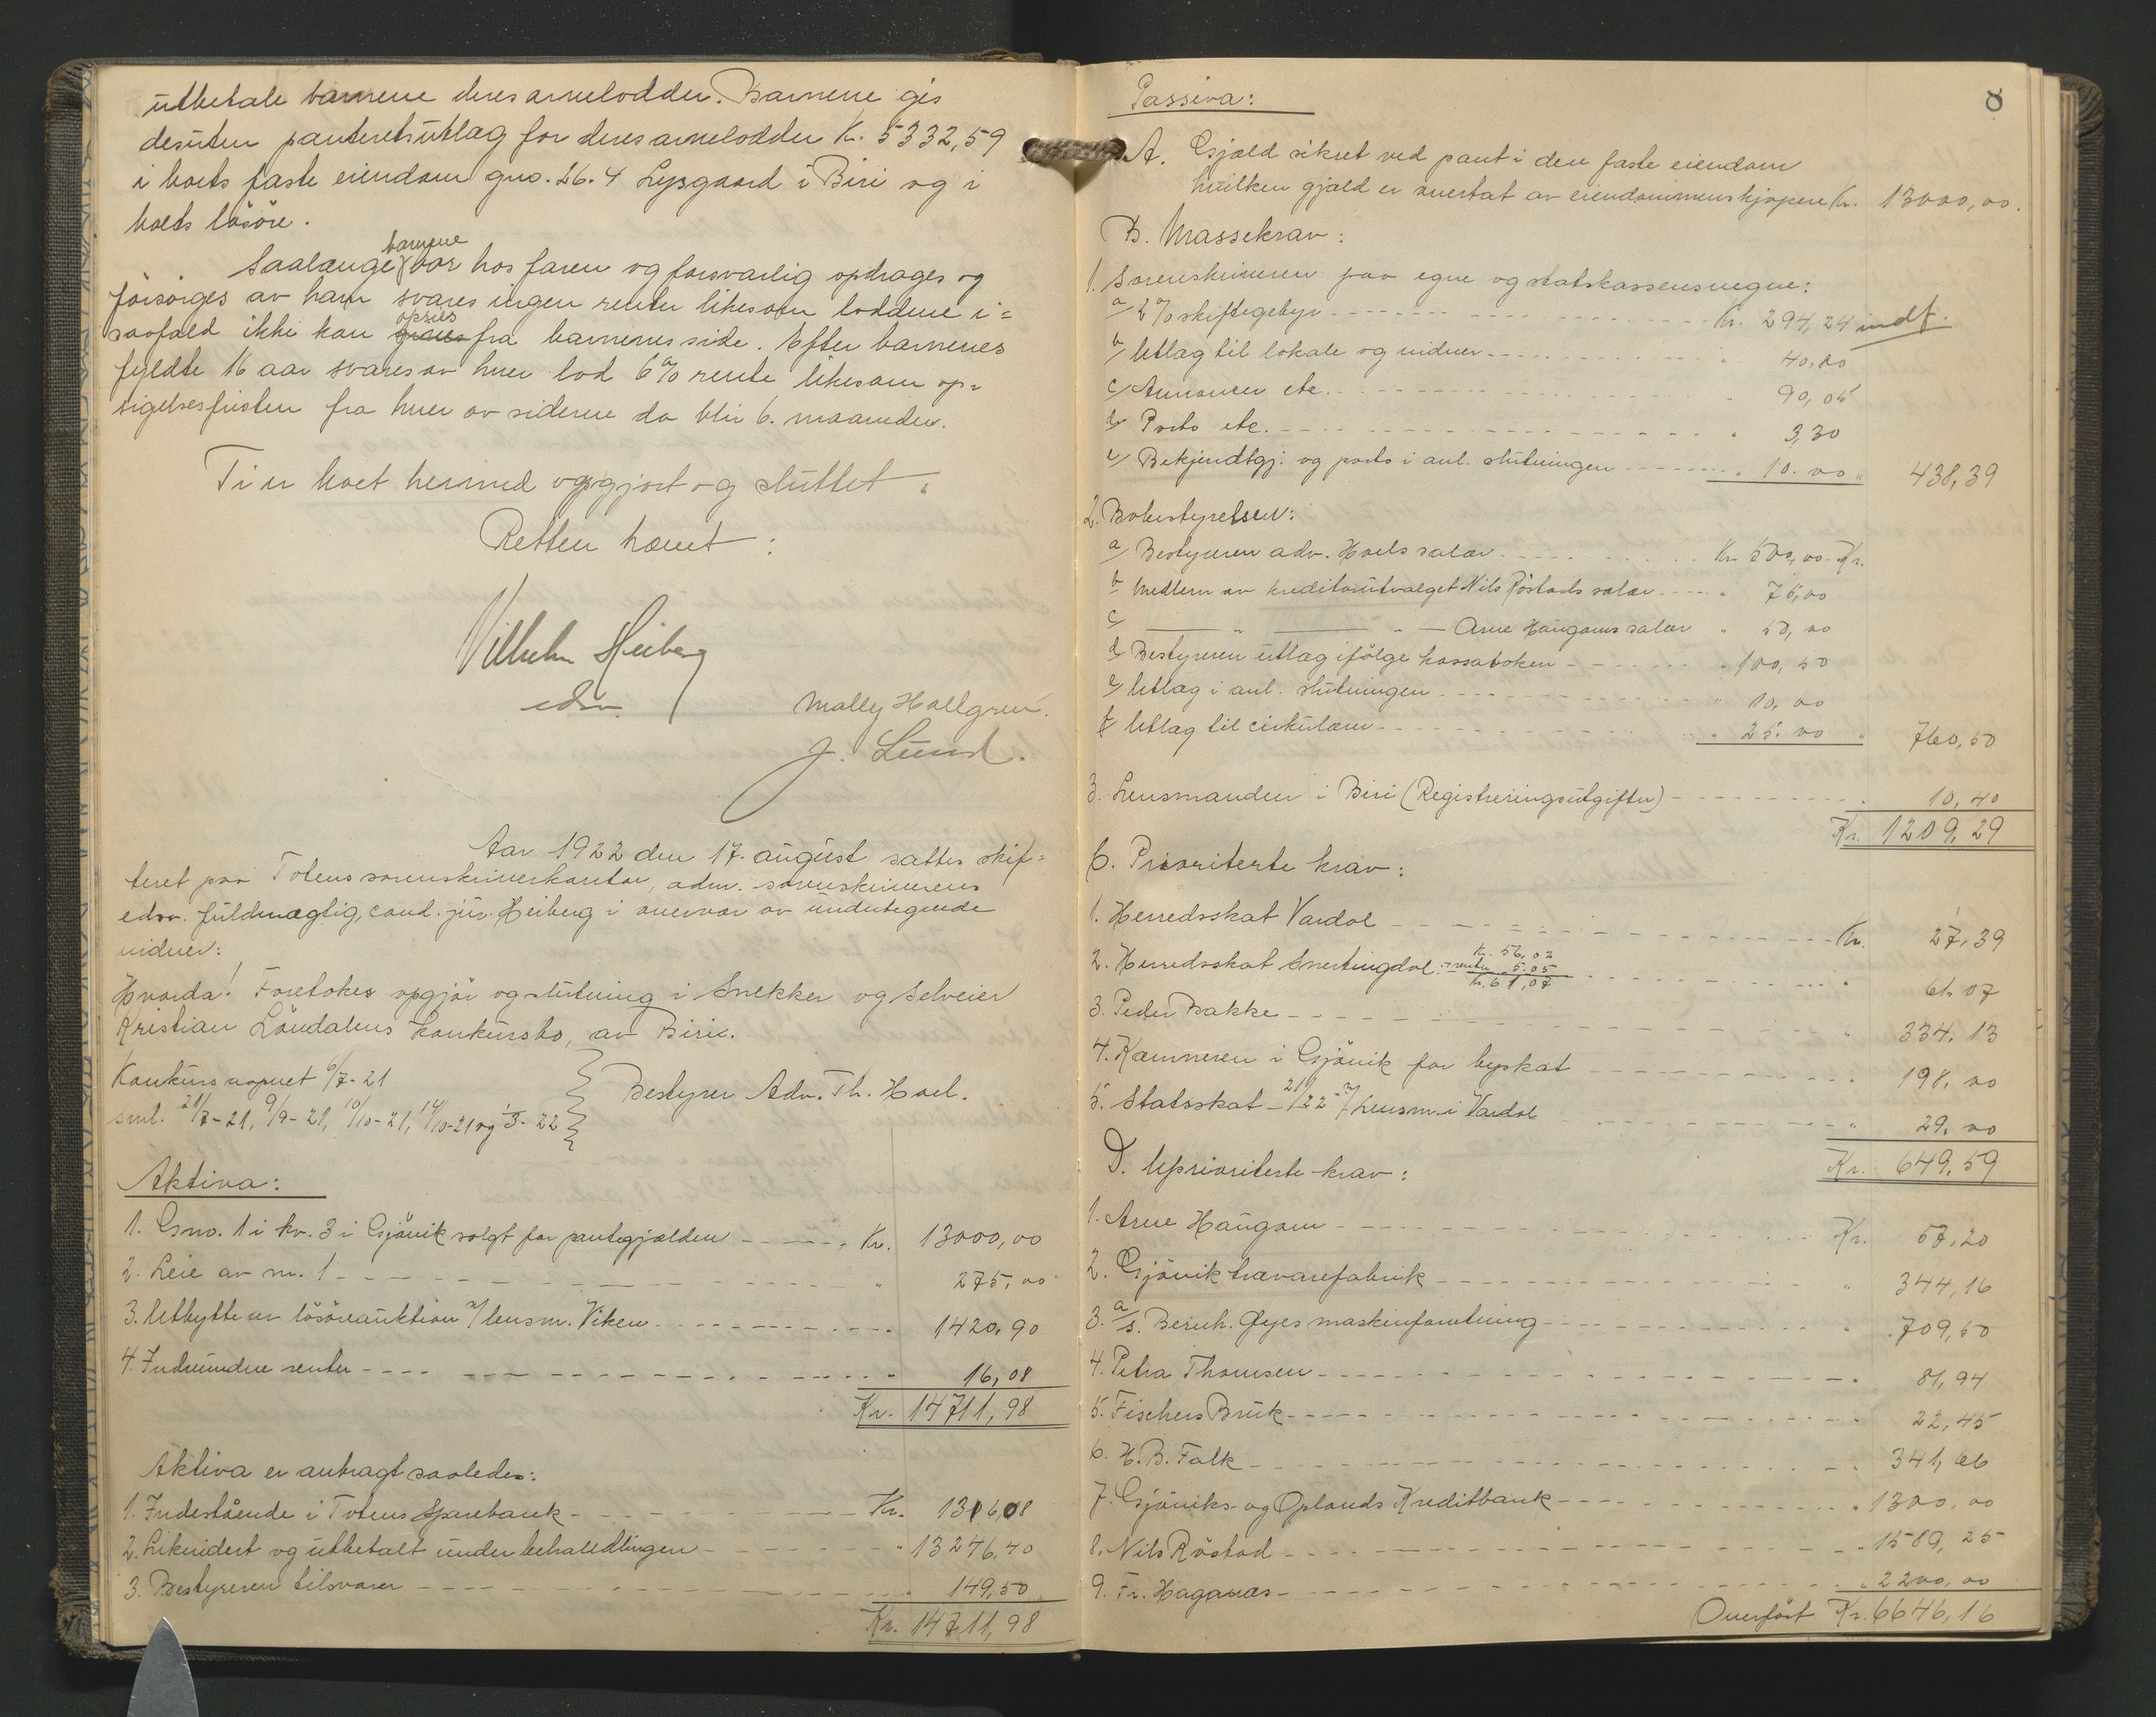 utbetale barnene deres arvelodder. Barnene gis
desuten panteretsutlæg for deres arvelodder Kr. 5332,59
i boets faste eiendom gno. 26.4 Lysgaard i Biri og i
boets løsøre.
Saalænge barnene var hos faren og forsvarlig opdrages og
forsørges av ham svares ingen renter likesom loddene i-
saafald ikke kan opsies fra barnenes side. Efter barnenes
fyldte 16 aar svares av hver lod 6% rente likesom op-
sigelsesfristen fra hver av siderne da blir 6. maaneder.
Ti er boet hermed opgjort og sluttet.
Retten hævet:
Vilhelm Heiberg
edsv.
Molly Hallgren.
J. Lund.
Aar 1922 den 17. august sattes skif-
teret paa Totens sorenskriverkontor, adm. sorenskriverens
edsv. fuldmægtig, cand. jur. Heiberg i overvær av undertegnede
vidner:
Hvorda! Foretokes opgjør og slutning i Snekker og Selveier
Kristian Løndalens konkursbo, av Biri.
Konkurs aapnet 6/7-21
sml. 21/7-21, 9/9-21, 10/10-21, 14/10-21 og 1/3-22
Bestyrer Adv. Th. Hoel.
Aktiva:
1. Gno. 1 i kv. 3 i Gjøvik solgt for pantegjælden Kr. 13000,00
2. Leie av nr. 1 " 275,00
3. Utbytte av løsøreauktion v/ lensm. Viken 1420,90
4. Indvundne renter " 16,08
Kr. 14711,98
Aktiva er anbragt saaledes:
1. Indestående i Totens Sparebank Kr. 1316,08
2. Likvidert og utbetalt under behandlingen " 13246,40
3. Bestyreren tilsvarer " 149,50
Kr. 14711,98
8
Passiva:
A. Gjæld sikret ved pant i den faste eiendom
hvilken gjæld er overtat av eiendommens kjøpere Kr. 13000,00.
B. Massekrav:
1. Sorenskriveren paa egne og statskassens vegne:
a/ 2% skiftegebyr Kr. 294,24 indf.
b/ Utlæg til lokale og vidner " 40,80
c/ Annoncer etc. " 90,05
d/ Porto etc. " 3,30
e/ Bekjendtgj. og porto i anl. slutningen " 10.00 " 438,39
2. Bobestyrelsen:
a/ Bestyreren adv. Hoels salær Kr. 500,00 Kr.
b/ Medlem av kreditorutvalget Nils Røstads salær " 75,00
c/ " " Arne Haugoms salær " 50,00
d/ Bestyreren utlæg ifølge kassaboken " 100,50
e/ Utlæg i anl. slutningen " 10,00
f/ Utlæg til cirkulærer " 25.00 " 760,50
3. Lensmanden i Biri (Registreringsutgifter) " 10,40
Kr. 1209,29
C. Prioriterte krav:
1. Herredsskat Vardal Kr. 27,39
2. Herredsskat Snertingdal Kr. 56,02 + renter " 5.05 Kr. 61,07 " 61,07
3. Peder Bakke " 334,13
4. Kæmneren i Gjøvik for byskat " 198,00
5. Statsskat 21/22 v/ lensm. i Vardal " 29,00
Kr. 649,59
D. Uprioriterte krav:
1. Arne Haugom Kr. 57,20
2. Gjøvik trævarefabrik " 344,16
3. a/s. Bernh. Øyes maskinforretning " 709,50
4. Petra Thomsen " 81,94
5. Fischers Bruk " 22,45
6. H.B. Falk " 341,66
7. Gjøviks- og Oplands Kreditbank " 1300,00
8. Nils Røstad " 1589,25
9. Fr. Haganæs " 2200,00
Overført Kr. 6646,16